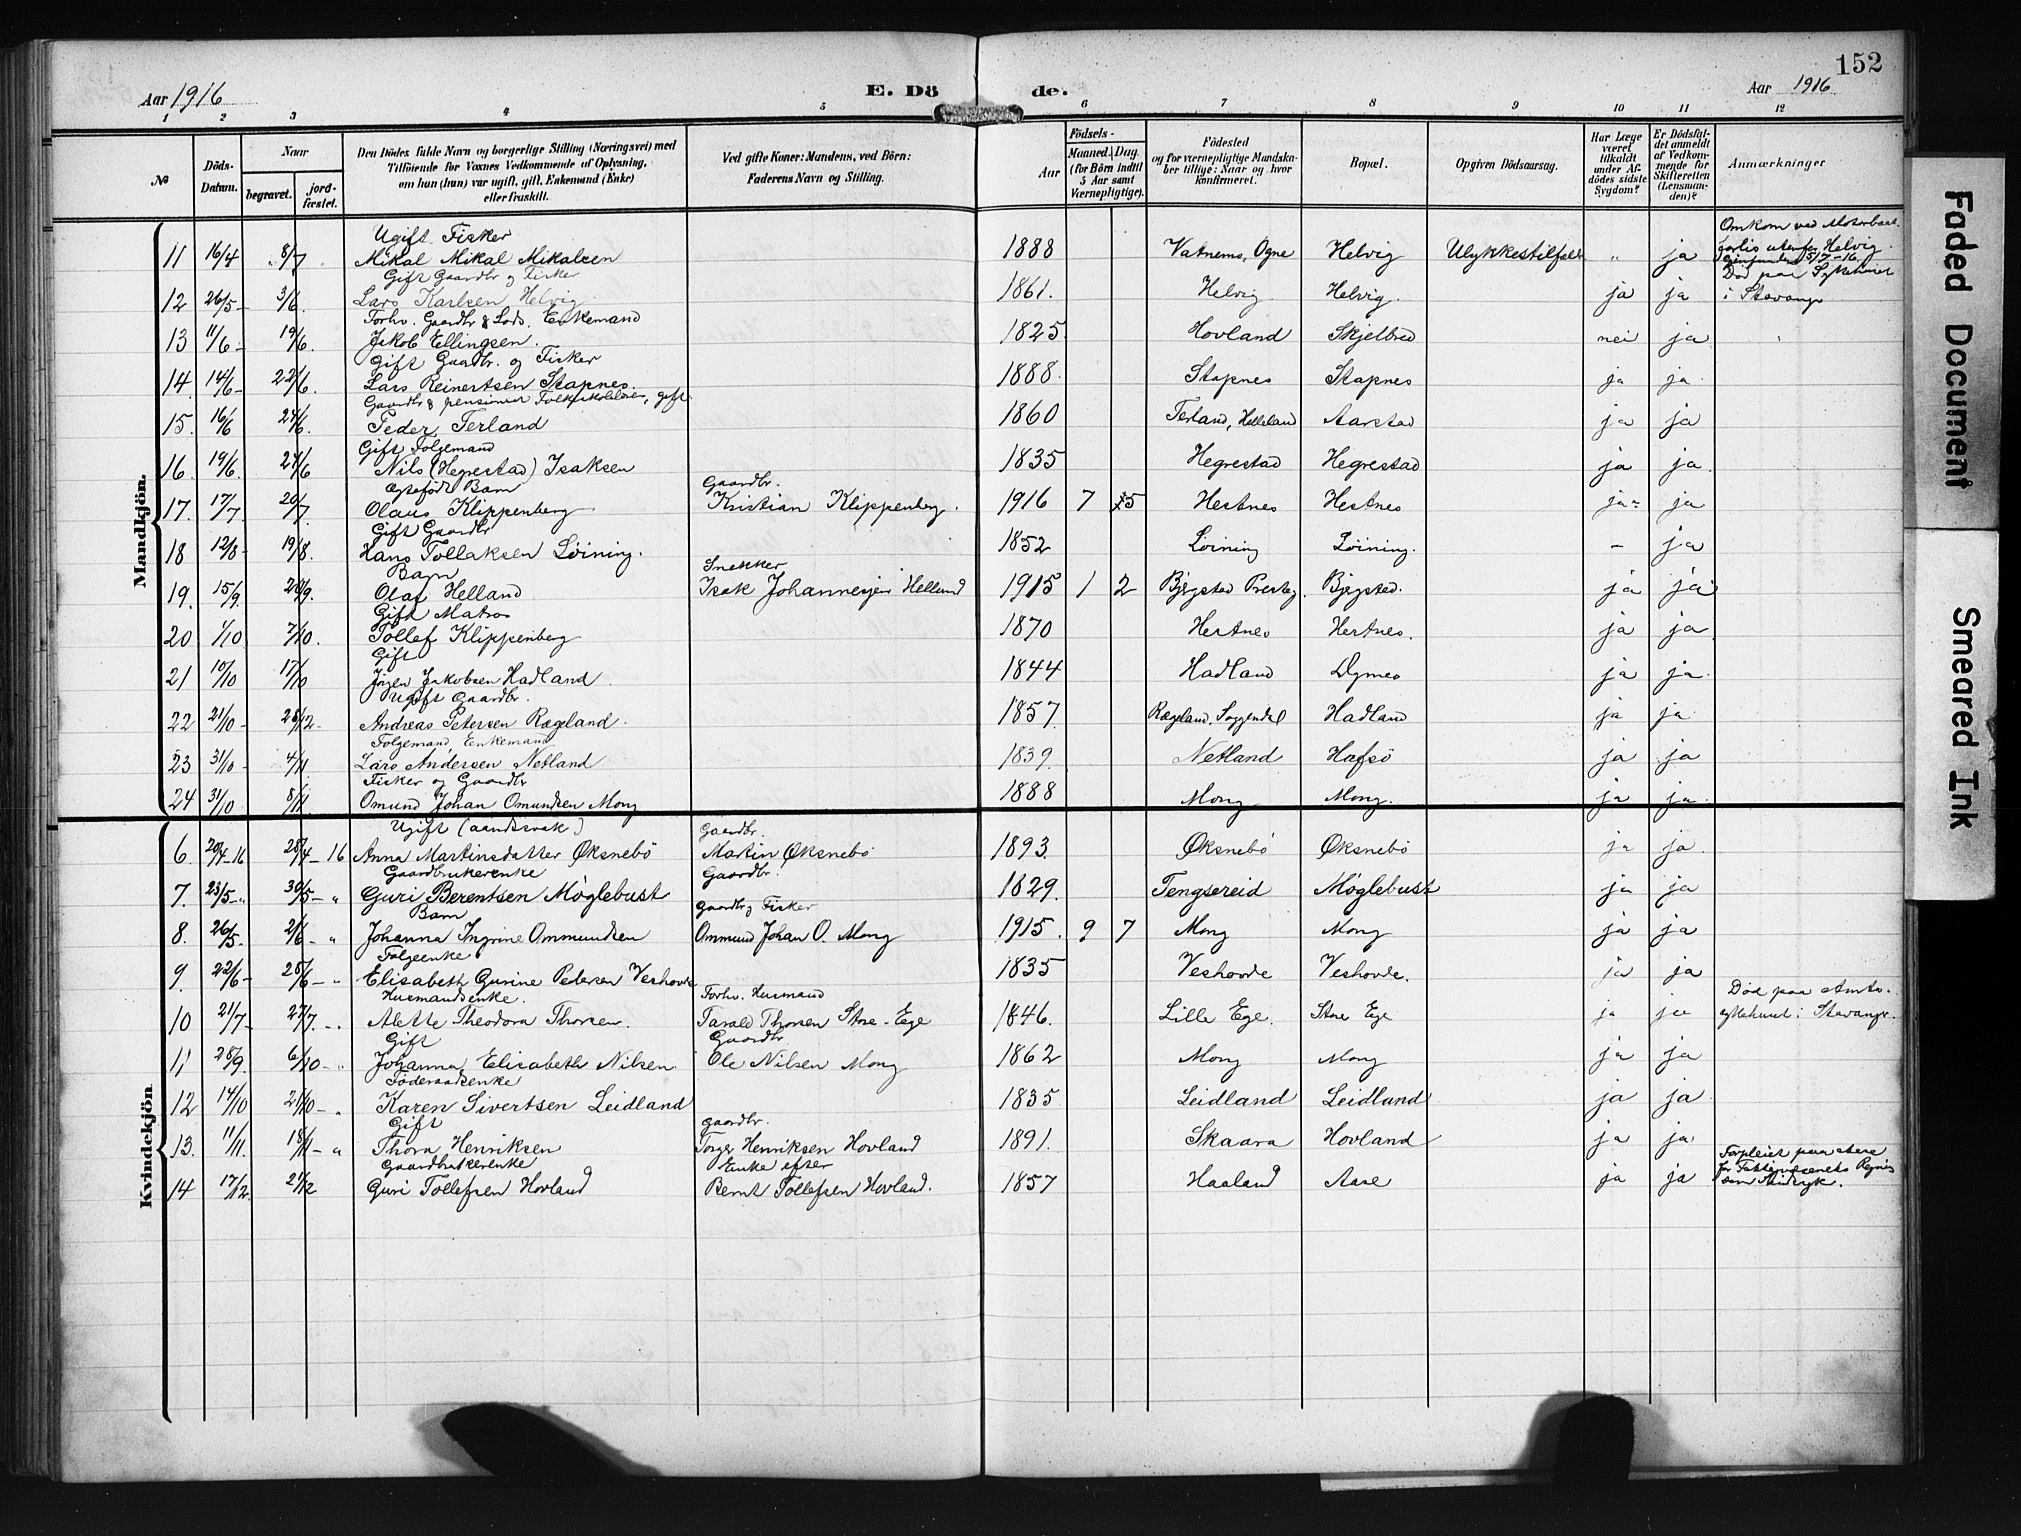 152
Aar 1916 E. Dö de. Aar 1916
1 2 3 4 5 6 7 8 9 10 11 12
No
Döds-Datum.
Naar
begravet.
jord-fæstet.
Den Dödes fulde Navn og borgerlige Stilling (Næringsvei) med
Tilföiende for Voxnes Vedkommende af Oplysning,
om han (hun) var ugift, gift, Enkemand (Enke)
eller fraskilt.
Ved gifte Koner: Mandens, ved Börn:
Faderens Navn og Stilling.
Födsels-
Aar
Maaned. Dag.
(for Börn indtil
5 Aar samt
Værnepligtige).
Födested
og for værnepligtige Mandska-
ber tillige: Naar og hvor
konfirmeret.
Bopæl.
Opgiven Dödsaarsag.
Har Læge
været
tilkaldt
under Af-
dödes sidste
Sygdom?
Er Dödsfal-
det anmeldt
af Vedkom-
mende for
Skifteretten
(Lensman-
den)?
Anmærkninger
Mandkjön.
Ugift Fisker
11 16/4 " 8/7 Mikal Mikal Mikalsen 1888 Vatnemo, Ogne Helvig Ulykkestilfælde " ja Omkom ved Motorbaat
forlis utenfor Helvig.
Gjenfunden 5/7-16
Gift Gaardbr og Fisker
12 26/5- 3/6. Lars Karlsen Helvig. 1861. Helvig. Helvig. ja ja Död paa Sykehuset
i Stavanger
Forhv. Gaardbr & Lods. Enkemand
13 11/6- 19/6. Jakob Ellingsen. 1825 Hovland Skjelbred nei ja
Gift Gaardbr. og Fisker
14. 14/6- 22/6. Lars Reinertsen Stapnes. 1888. Stapnes Stapnes ja ja.
Gaardbr & pensioneret Folkeskolelærer, gift.
15. 16/6 24/6. Peder Terland 1860 Terland, Helleland Aarstad ja ja
Gift Folgemand
16. 19/6. 24/6 Nils (Hegrestad) Isaksen 1835 Hegrestad Hegrestad ja ja.
Ægtefødt Barn Gaardbr.
17. 17/7. 20/7. Olaus Klippenberg Kristian Klippenberg. 1916 7 5 Hestnes Hestnes ja ja
Gift Gaardbr
18 12/8- 19/8. Hans Tollaksen Löining. 1852 Löining Löining. – ja
Barn Snekker
19. 15/9. 20/9. Olaf Helland Isak Johannesen Helland 1915 1 2 Bjerstad Presteg. Bjerstad. ja ja
Gift Matros
20 1/10 7/10. Tollef Klippenberg 1870 Hestnes Hestnes. ja ja.
Gift
21 10/10 17/10 Jørgen Jakobsen Hadland. 1844 Hadland Dymes ja ja.
Ugift Gaardbr.
22 21/10- 28/12. Andreas Petersen Rægeland. 1857. Rægeland, Soggendal Hadland ja ja.
Folgemand, Enkemand
23 31/10- 4/11. Lars Andersen Netland 1839. Netland Hafsö ja ja
Fisker og Gaardbr
24 31/10 8/11. Omund Johan Omundsen Mong 1888 Mong Mong. ja ja.
Kvindekjön
Ugift (aandssvak) Gaardbr.
6. 20/4-16 28/4-16 Anna Martinsdatter Øksnebö Martin Øksnebö 1893. Øksnebö Øksnebö ja ja.
Gaardbrukerenke Gaardbr.
7. 23/5-" 30/5-" Guri Berentsen Møglebust 1829. Tengsereid Møglebust ja ja
Barn Gaardbr og Fisker
8. 26/5. 2/6-" Johanna Ingrine Ommundsen Ommund Johan O. Mong 1915. 9 7 Mong Mong ja ja
Folgeenke
9. 22/6- 28/6-" Elisabeth Gurine Pedersen Veshovde 1835 Veshovde Veshovde. ja ja
Husmandsenke. Forhv. Husmand
10 21/7- 27/7.-" Alette Theodora Thorsen. Tarald Thorsen Store-Ege 1846. Lille Ege. Store Ege ja ja Død paa Amts-
sykehuset i Stavanger.
Gift Gaardbr
11 28/9. 6/10-" Johanna Elisabeth Nilsen Ole Nilsen Mong 1862 Mong Mong ja ja
Föderaadsenke
12 14/10 21/10-" Karen Sivertsen Leidland 1835 Leidland Leidland ja ja
Gift Gaardbr.
13. 11/11. 18/11-" Thora Henriksen Torger Henriksen Hovland 1891. Skaara Hovland ja ja
Gaardbrukerenke Enke efter
14 17/12. 21/12 Guri Tollefsen Hovland Bernt Tollefsen Hovland. 1857 Haaland Aase ja ja Forpleiet paa Aase
for Fattigvæsenets Regning
som Sindsyk.
Faded Document
Smeared Ink